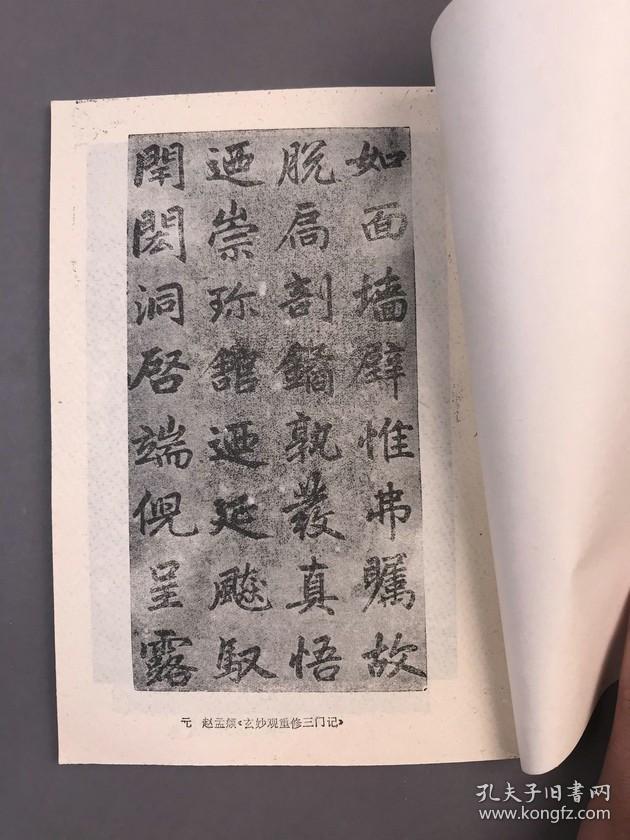 如面墻壁惟弗矚故
脫扃剖鐍孰發真悟
迺崇珎舘迺延飈馭
閈閎洞啓端倪呈露
元 赵孟頫《玄妙观重修三门记》
孔夫子旧书网
www.kongfz.com